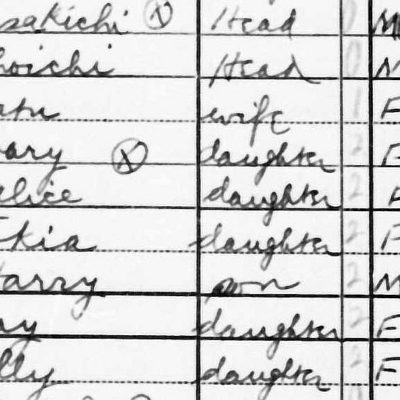 sakichi ⓧ Head 0 M
oichi Head 0 M
wife 1 F
ary ⓧ daughter 2 F
alice daughter 2 F
kia daughter 2 F
Harry son 2 M
ay daughter 2 F
lly daughter 2 F